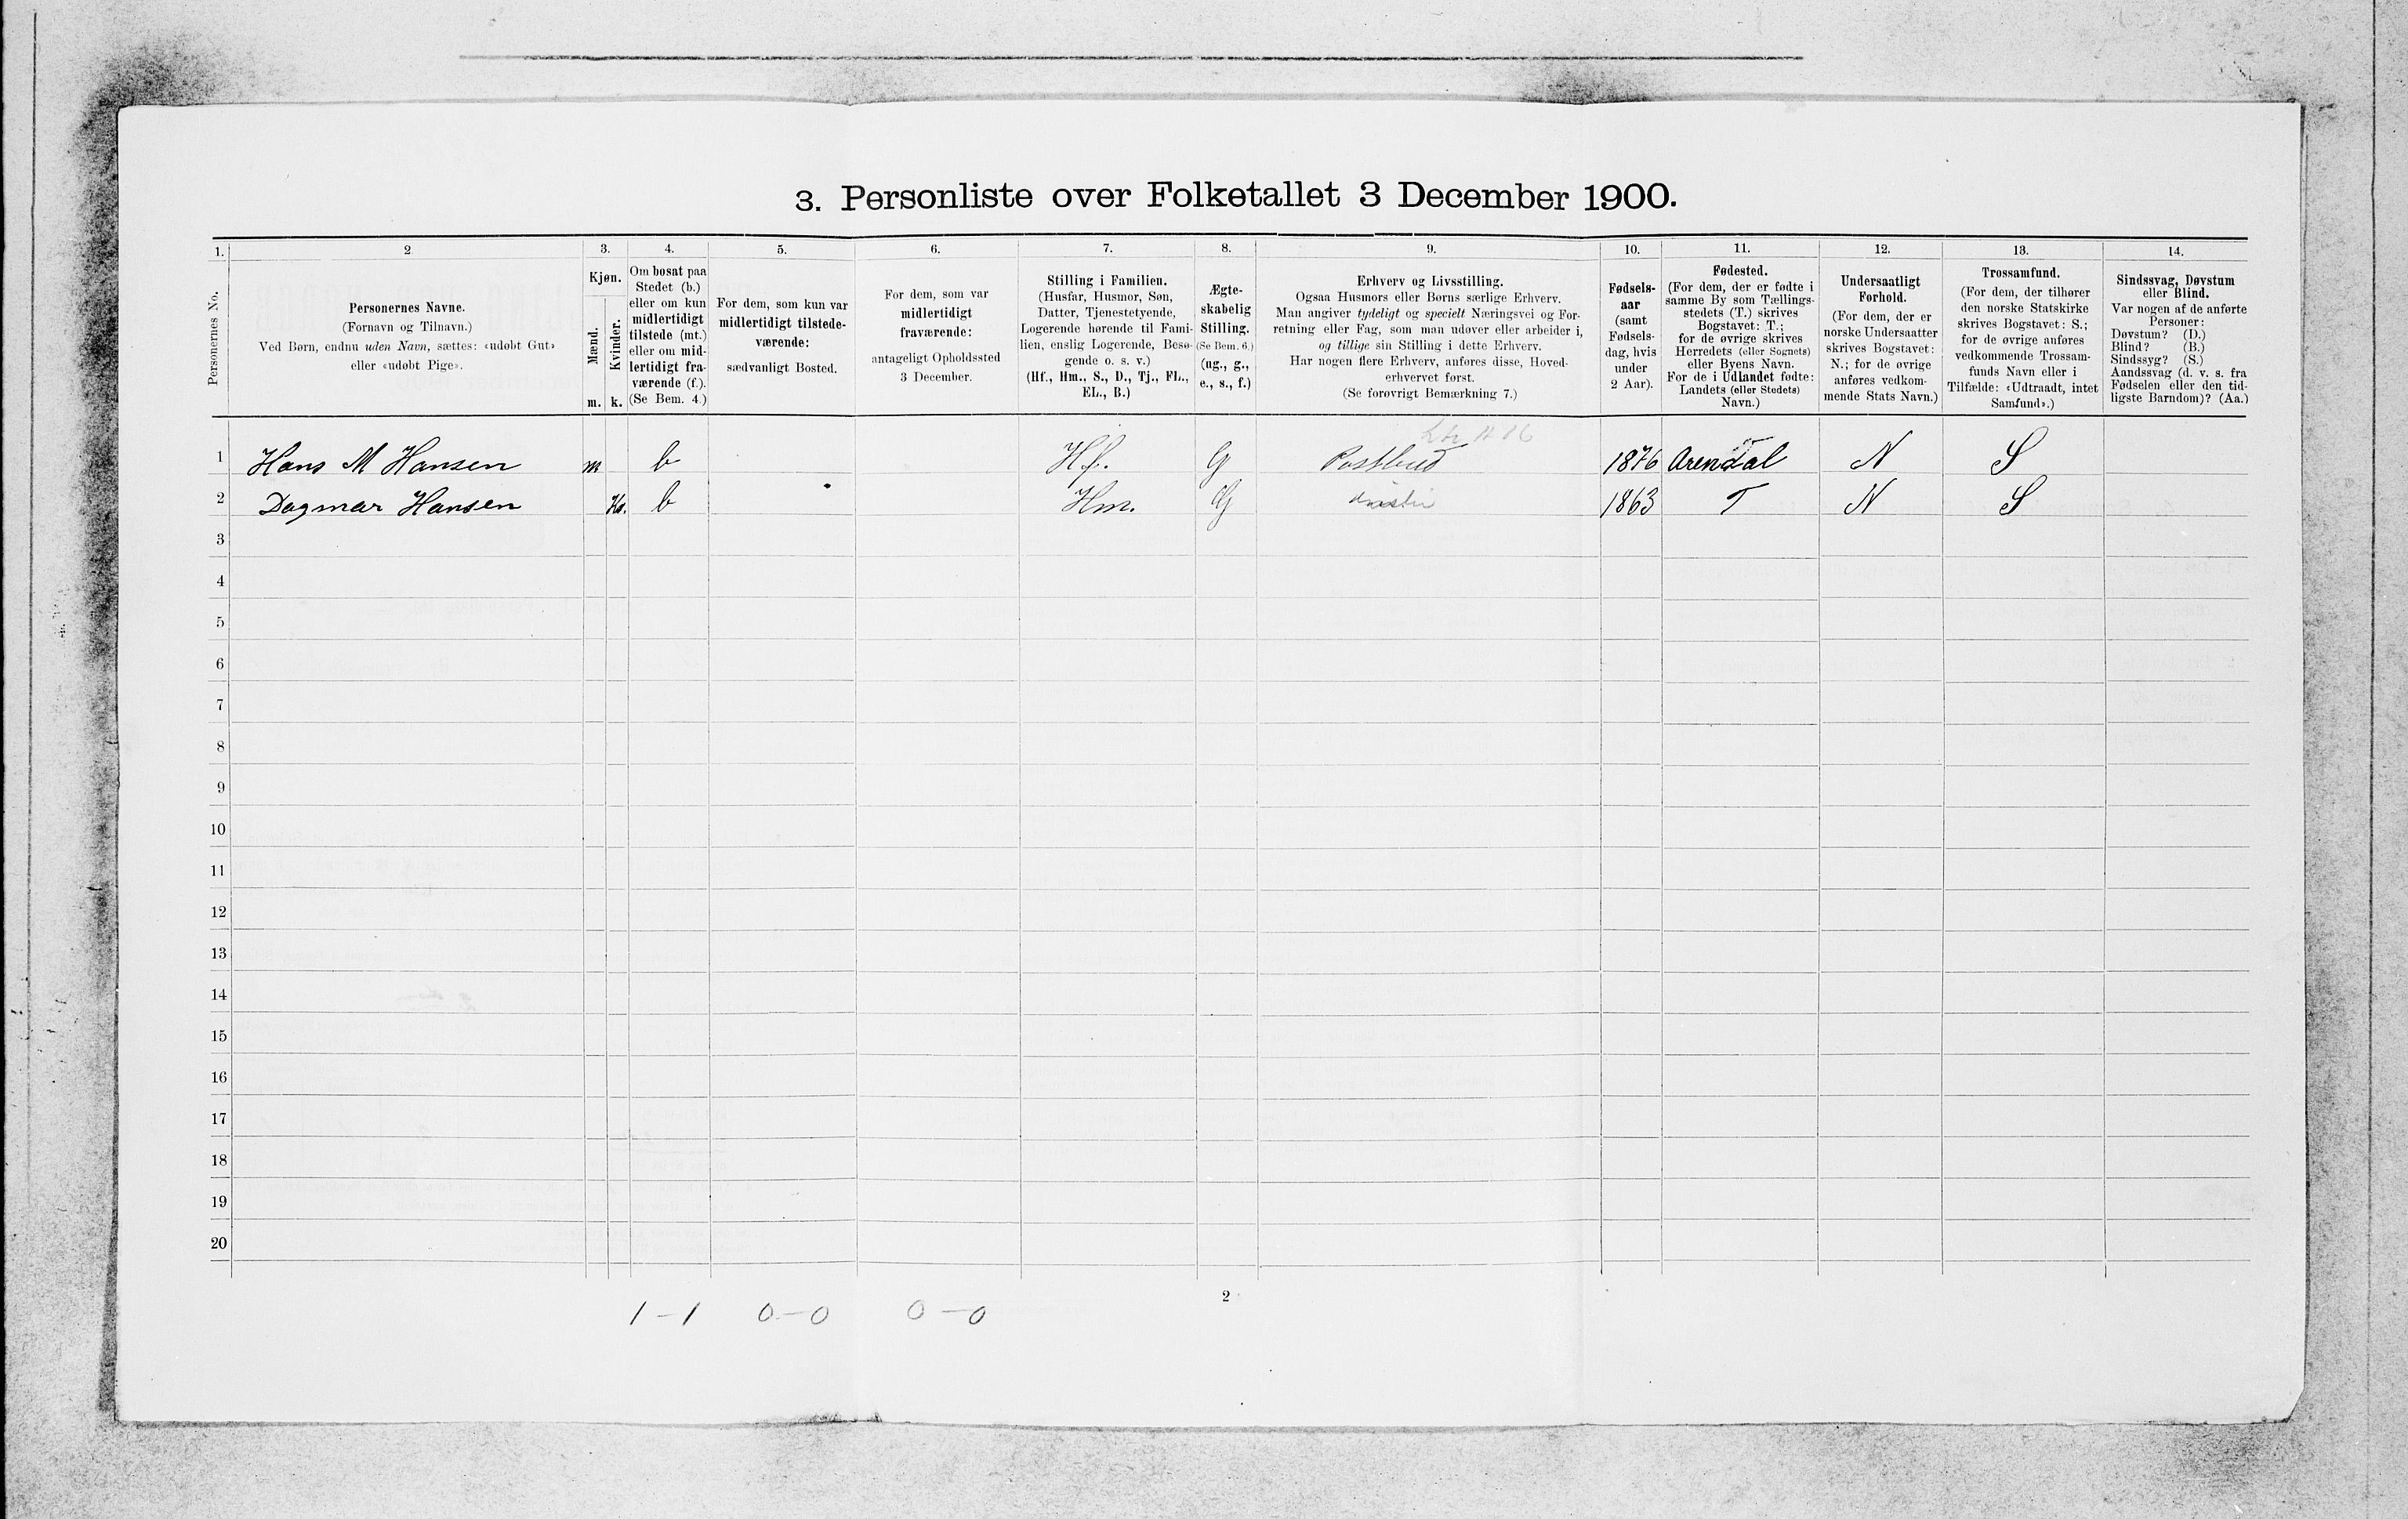 3. Personliste over Folketallet 3 December 1900.
1.
2
3.
4.
5.
6.
7.
8.
9.
10.
11.
12.
13.
14.
Personernes No.
Personernes Navne.
(Fornavn og Tilnavn.)
Ved Børn, endnu uden Navn, sættes: «udøbt Gut»
eller «udøbt Pige».
Kjøn.
Mænd.
Kvinder.
m.
k.
Om bosat paa
Stedet (b.)
eller om kun
midlertidigt
tilstede (mt.)
eller om mid-
lertidigt fra-
værende (f.).
(Se Bem. 4.)
For dem, som kun var
midlertidigt tilstede-
værende:
sædvanligt Bosted.
For dem, som var
midlertidigt
fraværende:
antageligt Opholdssted
3 December.
Stilling i Familien.
(Husfar, Husmor, Søn,
Datter, Tjenestetyende,
Logerende hørende til Fami-
lien, enslig Logerende, Besø-
gende o. s. v.)
(Hf., Hm., S., D., Tj., FL.,
EL., B.)
Ægte-
skabelig
Stilling.
(Se Bem. 6.)
(ug., g.,
e., s., f.)
Erhverv og Livsstilling.
Ogsaa Husmors eller Børns særlige Erhverv.
Man angiver tydeligt og specielt Næringsvei og For-
retning eller Fag, som man udøver eller arbeider i,
og tillige sin Stilling i dette Erhverv.
Har nogen flere Erhverv, anføres disse, Hoved-
erhvervet først.
(Se forøvrigt Bemærkning 7.)
Fødsels-
aar
(samt
Fødsels-
dag, hvis
under
2 Aar).
Fødested.
(For dem, der er fødte i
samme By som Tællings-
stedets (T.) skrives
Bogstavet: T.;
for de øvrige skrives
Herredets (eller Sognets)
eller Byens Navn.
For de i Udlandet fødte:
Landets (eller Stedets)
Navn.)
Undersaatligt
Forhold.
(For dem, der er
norske Undersaatter
skrives Bogstavet:
N.; for de øvrige
anføres vedkom-
mende Stats Navn.)
Trossamfund.
(For dem, der tilhører
den norske Statskirke
skrives Bogstavet: S.;
for de øvrige anføres
vedkommende Trossam-
funds Navn eller i
Tilfælde: «Udtraadt, intet
Samfund».)
Sindssvag, Døvstum
eller Blind.
Var nogen af de anførte
Personer:
Døvstum? (D.)
Blind? (B.)
Sindssyg? (S.)
Aandssvag (d. v. s. fra
Fødselen eller den tid-
ligste Barndom)? (Aa.)
1 Hans M Hansen m b Hf. G Postbud 1876 Arendal N S
2 Dagmar Hansen K. b Hm. G 1863 T N S
3
4
5
6
7
8
9
10
11
12
13
14
15
16
17
18
19
20
1 - 1 0 - 0 0 - 0
2